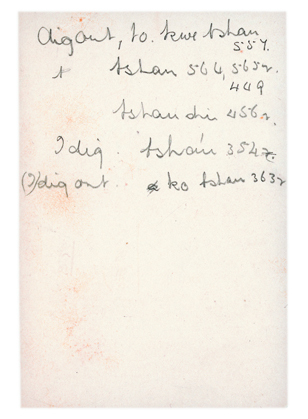 dig out, to. kwe tshan
557.
t tshan 564, 565r.
449
tshan chi 456r.
I dig. tshán 354r.
(I) dig out .. ko tshan 363r